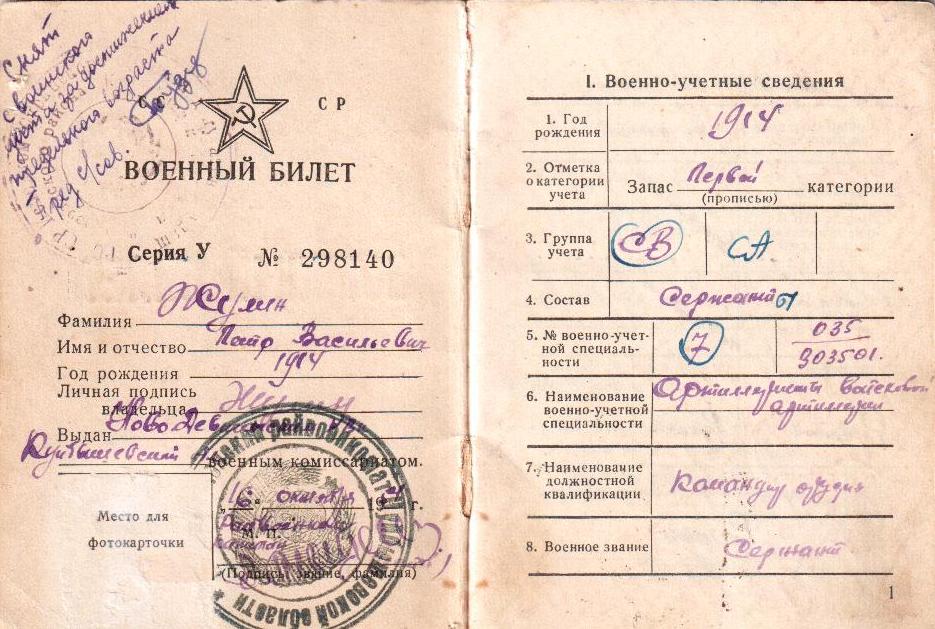 Снят
с воинского
учета за достижением
предельного возраста
СР
ВОЕННЫЙ БИЛЕТ
Серия У № 298140
Фамилия Жулин
Имя и отчество Петр Васильевич
Год рождения 1914
Личная подпись
владельца
Выдан Ново-Девиченский
Куйбышевский военным комиссариатом.
"16" октября г.
М. П.
(Подпись, звание, фамилия)
Место для
фотокарточки
I. Военно-учетные сведения
1. Год
рождения
1914
2. Отметка
о категории
учета
Запас Первой категории
(прописью)
3. Группа
учета
СВ СА
4. Состав Сержанты
5. № военно-учет-
ной специаль-
ности
7
035
303501.
6. Наименование
военно-учетной
специальности
Артиллеристы войсковой
артиллерии
7. Наименование
должностной
квалификации
Командир орудия
8. Военное звание Сержант
1